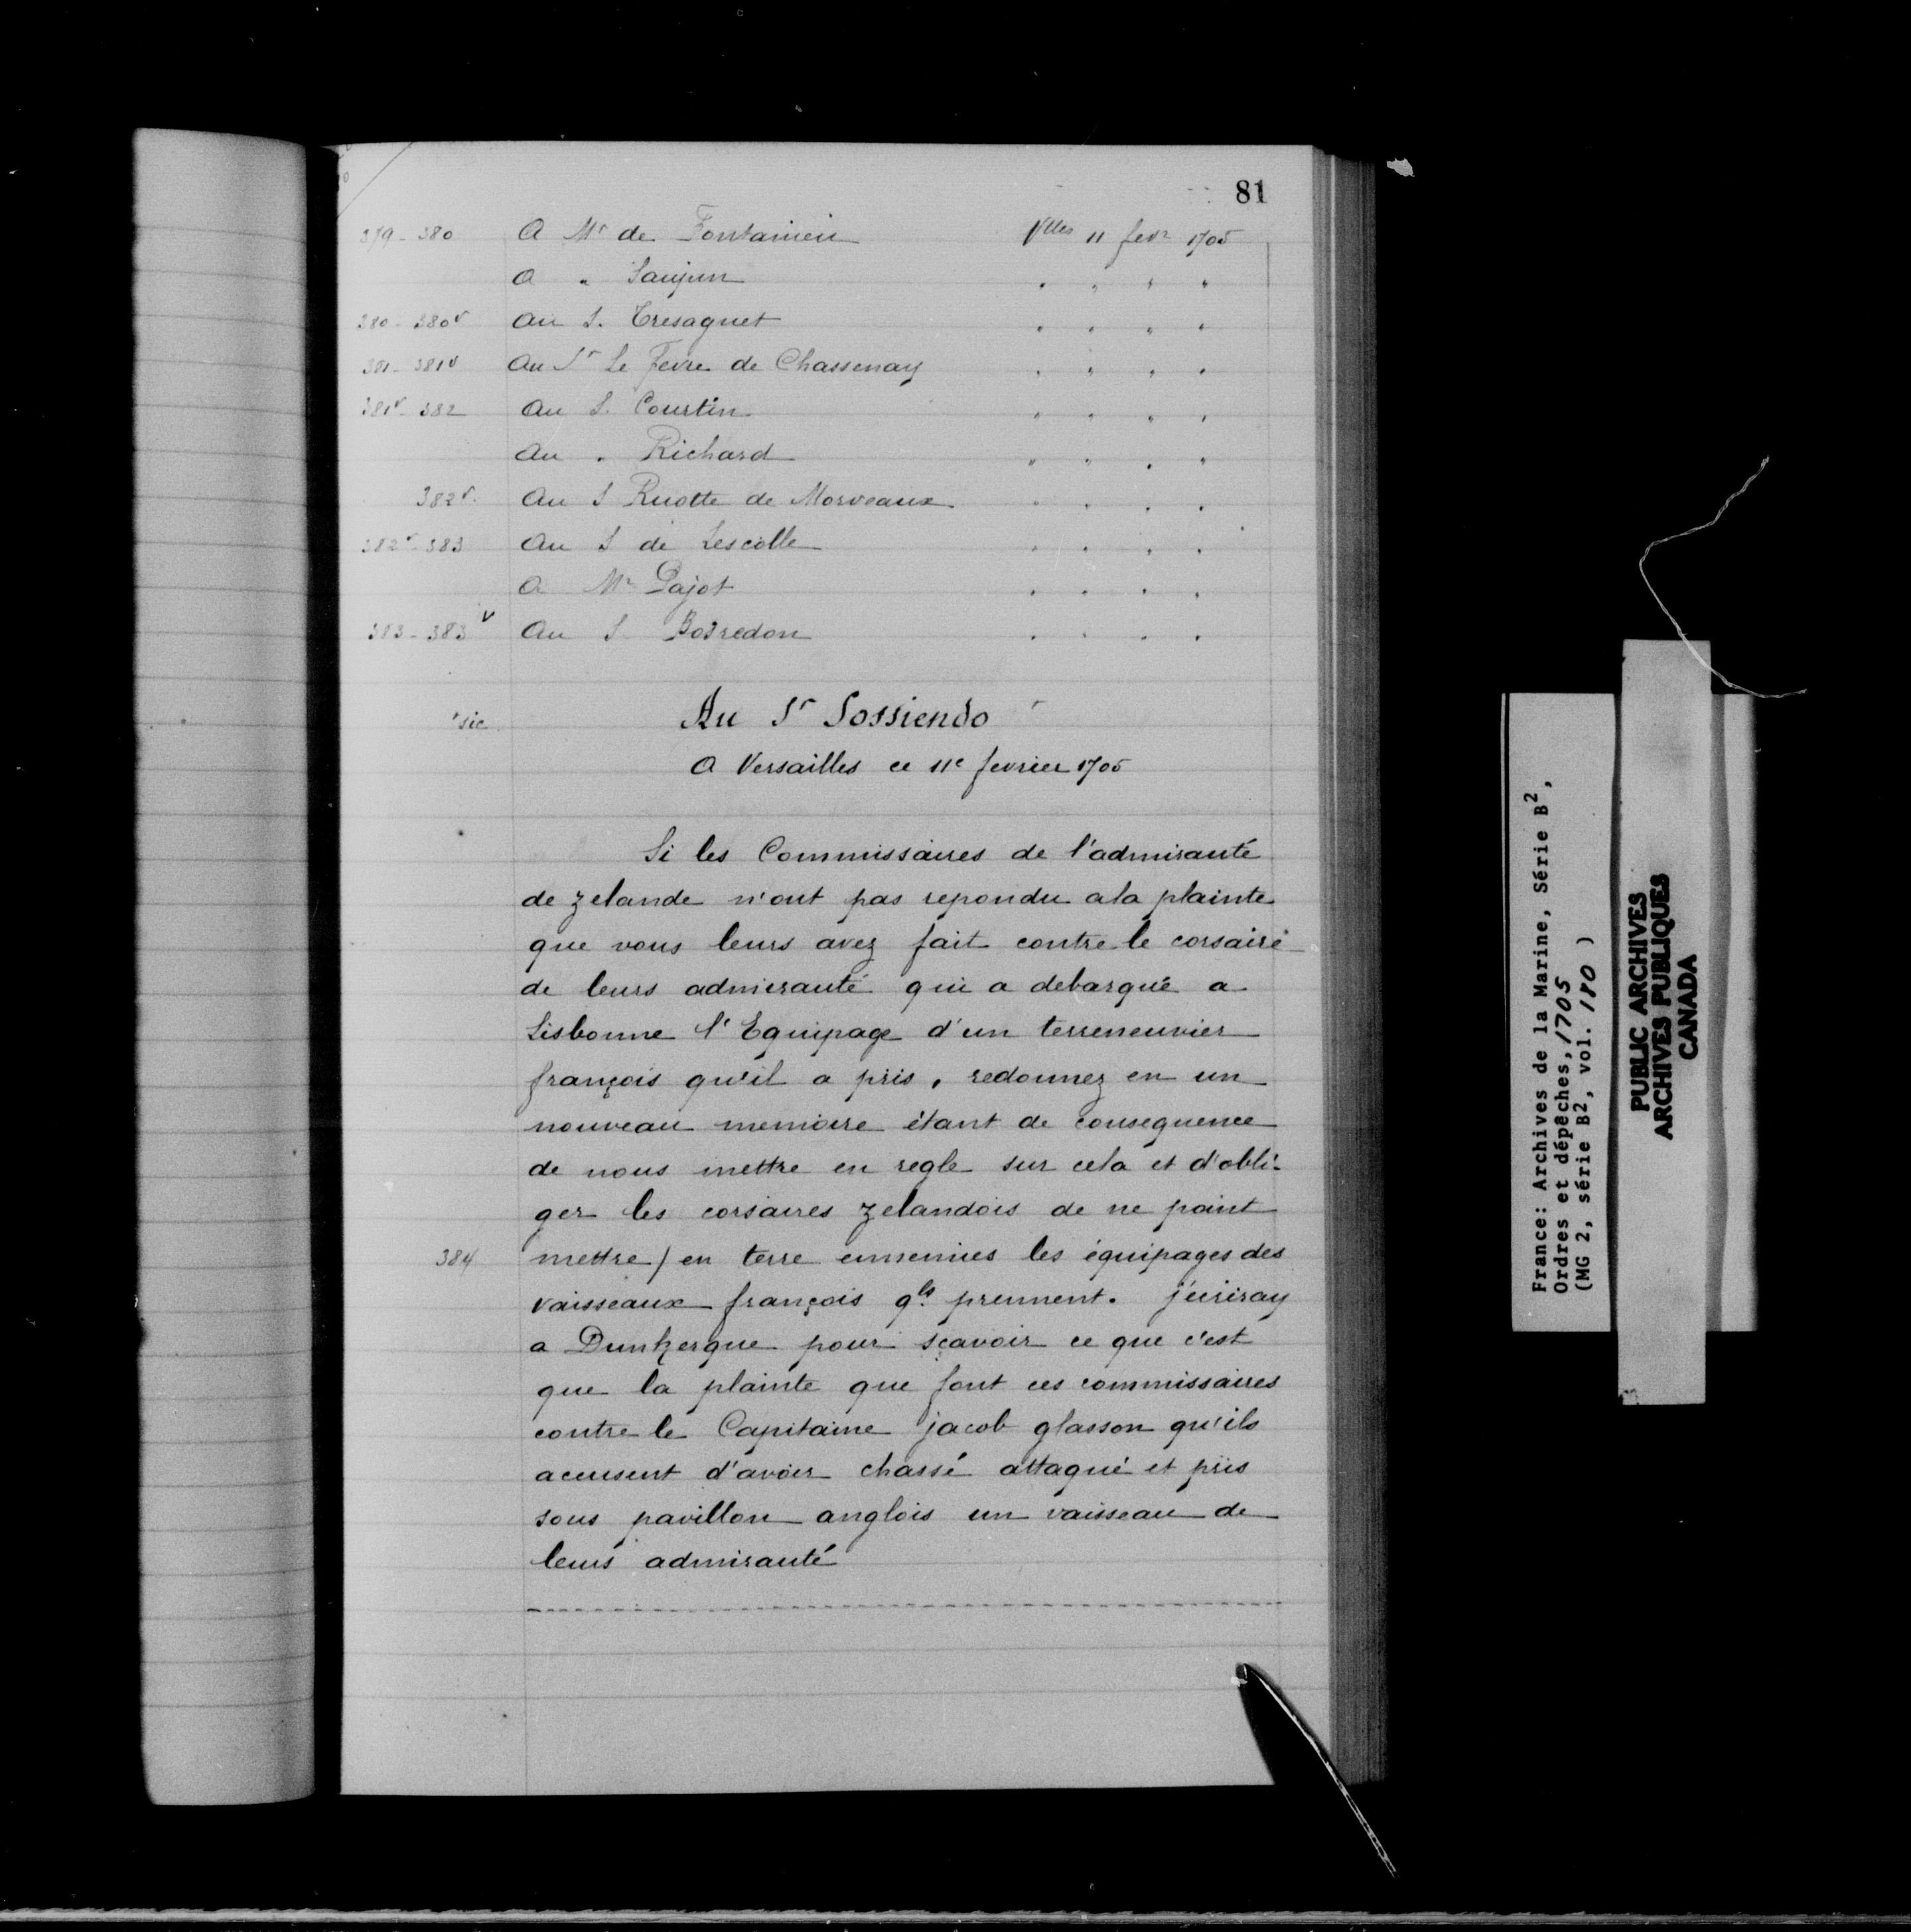 81
379-380 A Mr de Fontanieu Vlles 11 fevr 1705
A " Saujon " " " "
380-380v Au S. Tresaguet " " " "
381-381v Au Sr Le Fevre de Chassenay " " " "
381v-382 Au S. Courtin " " " "
Au " Richard " " " "
382v Au S Ruotte de Morveaux " " " "
382v-383 Au S de Lescolle " " " "
A Mr Pajot " " " "
383-383v Au S Bosredon " " " "
sic Au Sr Sossiendo
A Versailles ce 11e fevrier 1705
Si les Commissaires de l'admirauté
de zelande n'ont pas repondu ala plainte
que vous leurs avez fait contre le corsaire
de leurs admirauté qui a debarqué a
Lisbonne l'Equipage d'un terreneuvier
françois qu'il a pris, redonnez en un
nouveau memoire étant de consequence
de nous mettre en regle sur cela et d'obli-
ger les corsaires zelandois de ne point
384 mettre / en terre ennemies les équipages des
vaisseaux françois qls prennent. j'ecriray
a Dunkerque pour sçavoir ce que c'est
que la plainte que font ces commissaires
contre le Capitaine jacob glasson qu'ils
acensent d'avoir chassé attaqué et pris
sous pavillon anglois un vaisseau de
leurs admirauté
France: Archives de la Marine, Série B2,
Ordres et dépêches, 1705
(MG 2, série B2, vol. 180 )
PUBLIC ARCHIVES
ARCHIVES PUBLIQUES
CANADA